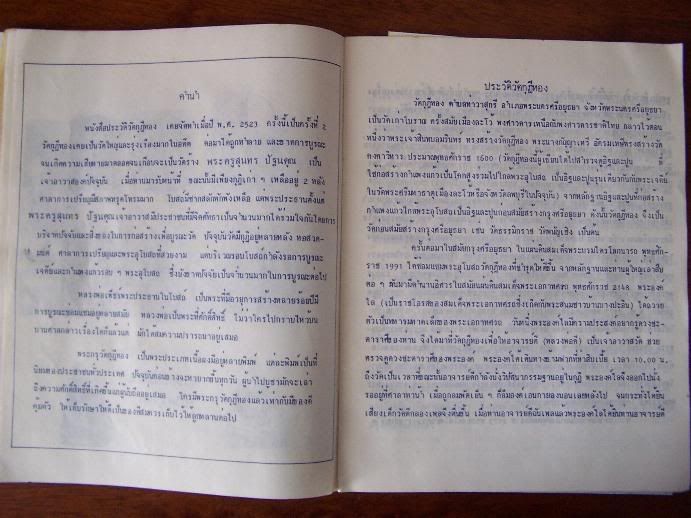 คำนำ
หนังสือประวัติวัดกุฎีทอง เคยจัดทำเมื่อปี พ.ศ. 2523 ครั้งนี้เป็นครั้งที่ 2
วัดกุฎีทองเคยเป็นวัดใหญ่และรุ่งเรืองมากในอดีต ต่อมาได้ถูกทำลาย และขาดการบูรณะ
จนเกิดความเสียหายมาตลอดจนเกือบจะเป็นวัดร้าง พระครูสุนทร ปัฐนคุณ เป็น
เจ้าอาวาสองค์ปัจจุบัน เมื่อท่านมารับหน้าที่ ขณะนั้นมีเพียงกุฎิเก่า ๆ เหลืออยู่ 2 หลัง
ศาลาการเปรียญมีสภาพทรุดโทรมมาก โบสถ์มีซากสลักหักพังเหลือ แต่พระประธานตั้งแต่
พระครูสุนทร ปัฐนคุณ เจ้าอาวาสมีประชาชนที่มีจิตศรัทธาเป็นจำนวนมากได้ร่วมใจกันโดยการ
บริจาคปัจจัยและสิ่งของในการก่อสร้างเพื่อบูรณะวัด ปัจจุบันวัดมีกุฎิอยู่หลายหลัง หอสวด-
มนต์ ศาลาการเปรียญและพระอุโบสถที่สวยงาม แต่บริเวณรอบโบสถ์กำลังรอการบูรณะ
เจดีย์และกำแพงแก้วรอบ ๆ พระอุโบสถ ซึ่งยังขาดปัจจัยเป็นจำนวนมากในการบูรณะต่อไป
หลวงพ่อเพ็ชร์พระประธานในโบสถ์ เป็นพระที่มีอายุการสร้างหลายร้อยปีมี
การบูรณะซ่อมแซมอยู่หลายสมัย หลวงพ่อเป็นพระที่ศักดิ์สิทธิ์ ไม่ว่าใครไปกราบไหว้บน
บานศาลกล่าวเรื่องใดก็แล้วแต่ มักได้สมความปรารถนาอยู่เสมอ
พระกรุวัดกุฎีทอง เป็นพระประเภทเนื้อผงมีอยู่หลายพิมพ์ แต่ละพิมพ์เป็นที่
นิยมของประชาชนทั่วประเทศ ปัจจุบันค่อนข้างจะหายากขึ้นทุกวัน ผู้นำไปบูชามักจะเล่า
ถึงความศักดิ์สิทธิ์ที่เกิดขึ้นแก่ผู้นับถืออยู่เสมอ ใครมีพระกรุวัดกุฎีทองแล้วเท่ากับมีของดี
คุ้มตัว ให้เก็บรักษาให้ดีเป็นของที่สมควรเก็บไว้ให้ลูกหลานต่อไป
ประวัติวัดกุฎีทอง
วัดกุฎีทอง ตำบลท่าวาสุกรี อำเภอพระนครศรีอยุธยา จังหวัดพระนครศรีอยุธยา
เป็นวัดเก่าโบราณ ครั้งสมัยเมืองละโว้ พงศาวดารเหนือกับพงศาวดารชาติไทย กล่าวไว้ตอน
หนึ่งว่าพระเจ้าสินทบอมรินทร์ ทรงสร้างวัดกุฎีทอง พระนางกัญญาเทวี อัครมเหษีทรงสร้างวัด
คงคาวิหาร ประมาณพุทธศักราช 1600 (วัดกุฎีทองนี้ผู้เขียนได้ไปสำรวจดูอิฐและปูน ที่
ใช้ก่อสร้างกำแพงแก้วเป็นโคกสูงรวมไปถึงพระอุโบสถ เป็นอิฐและปูนรุ่นเดียวกันกับพระเจดีย์
ในวัดพระศรีมหาธาตุเมืองละโว้หรือจังหวัดลพบุรีในปัจจุบัน) จากหลักฐานอิฐและปูนที่ก่อสร้าง
กำแพงแก้วใกล้พระอุโบสถเป็นอิฐและปูนก่อนสมัยสร้างกรุงศรีอยุธยา ดังนั้นวัดกุฎีทอง จึงเป็น
วัดก่อนสมัยสร้างกรุงศรีอยุธยา เช่น วัดธรรมิกราช วัดพนัญเชิง เป็นต้น
ครั้นต่อมาในสมัยกรุงศรีอยุธยา ในแผ่นดินสมเด็จพระบรมไตรโลกนารถ พุทธศัก-
ราช 1991 ได้ซ่อมแซมพระอุโบสถวัดกุฎีทองที่ชำรุดให้ดีขึ้น จากหลักฐานจากท่านผู้ใหญ่เล่าสืบ
ต่อ ๆ กันมามีตำนานอิศวรในสมัยแผ่นดินสมเด็จพระเอกาทศรถ พุทธศักราช 2148 พระองค์
ไล (เป็นราชโอรสของสมเด็จพระเอกาทศรถซึ่งเกิดกับพระสนมชาวบ้านบางปะอิน) ได้ถวาย
ตัวเป็นมหาดเล็กของพระเอกาทศรถ วันหนึ่งพระองค์ไลมีความประสงค์อยากดูดวงชะ-
ตาราศีของท่าน จึงได้มาที่วัดกุฎีทองเพื่อให้อาจารย์ดี (หลวงพ่อดี) เป็นเจ้าอาวาสวัด ช่วย
ตรวจดูดวงชะตาราศีของพระองค์ พระองค์ได้เดินทางข้ามฟากที่ท่าสิบเบี้ย เวลา 10.00 น.
ถึงวัดเป็นเวลาที่ขณะนั้นอาจารย์ดีกำลังนั่งวิปัสนากรรมฐานอยู่ในกุฎิ พระองค์ไลจึงออกไปนั่ง
รออยู่ที่ศาลาท่าน้ำ เมื่อถูกลมพัดเย็น ๆ ก็ล้มองค์เอนกายลงนอนเลยหลับไป จนกระทั่งได้ยิน
เสียงเด็กวัดตีกลองเพลจึงตื่นขึ้น เมื่อท่านอาจารย์ดีฉันเพลแล้วพระองค์ไลได้ขึ้นหาอาจารย์ดี